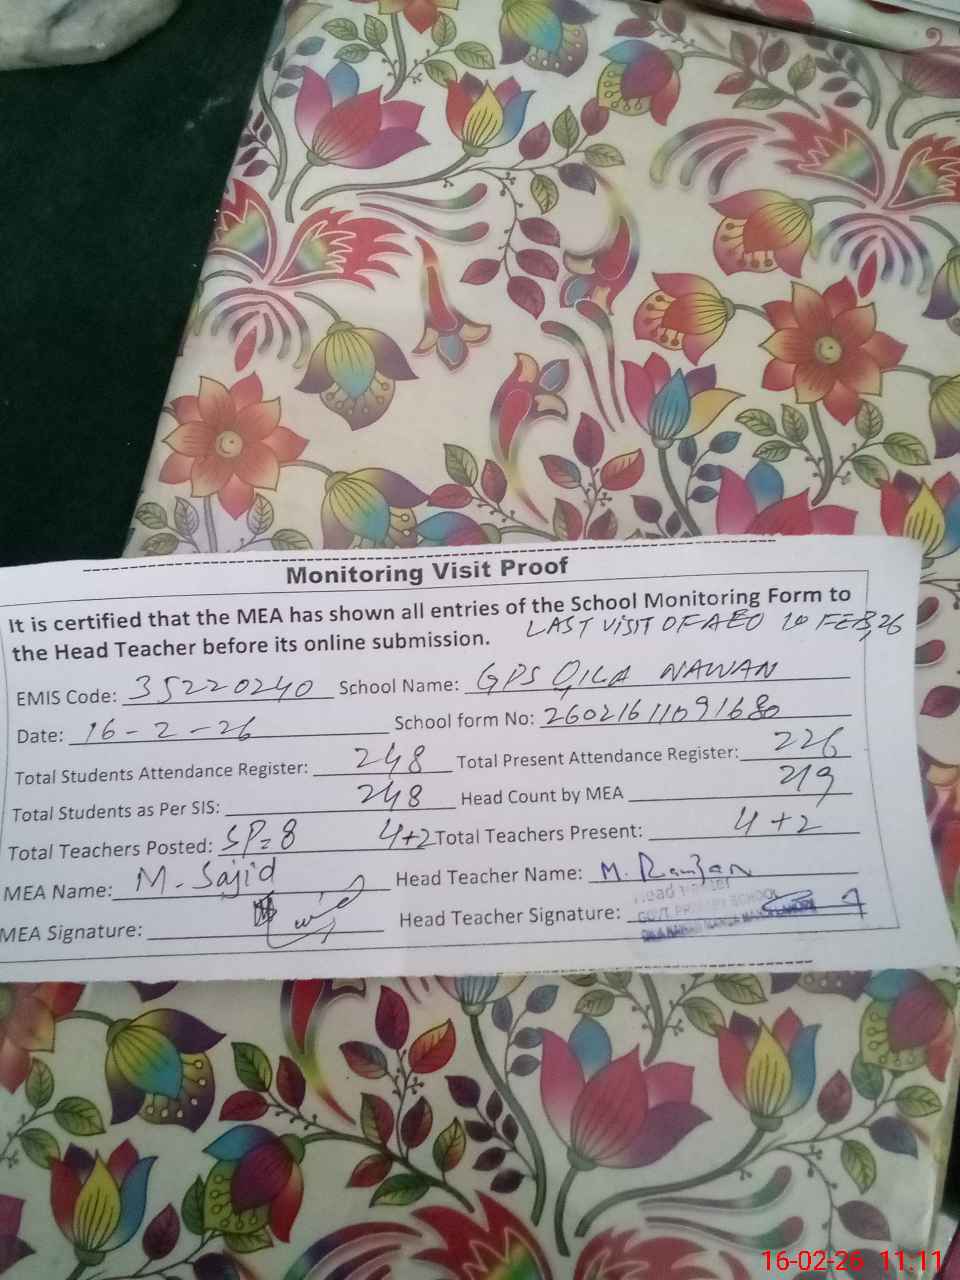 Monitoring Visit Proof
It is certified that the MEA has shown all entries of the School Monitoring Form to
the Head Teacher before its online submission. LAST VISIT OF AEO 10 FEB,26
EMIS Code: 35220240 School Name: GPS QILA NAWAN
Date: 16-2-26 School form No: 26021611091680
Total Students Attendance Register: 248 Total Present Attendance Register: 226
Total Students as Per SIS: 248 Head Count by MEA 219
Total Teachers Posted: SP=8 4+2 Total Teachers Present: 4+2
MEA Name: M. Sajid Head Teacher Name: M. Ramzan
MEA Signature: Head Teacher Signature:
Head
GOVT. PRIMARY SCHOOL
16-02-26 11:11